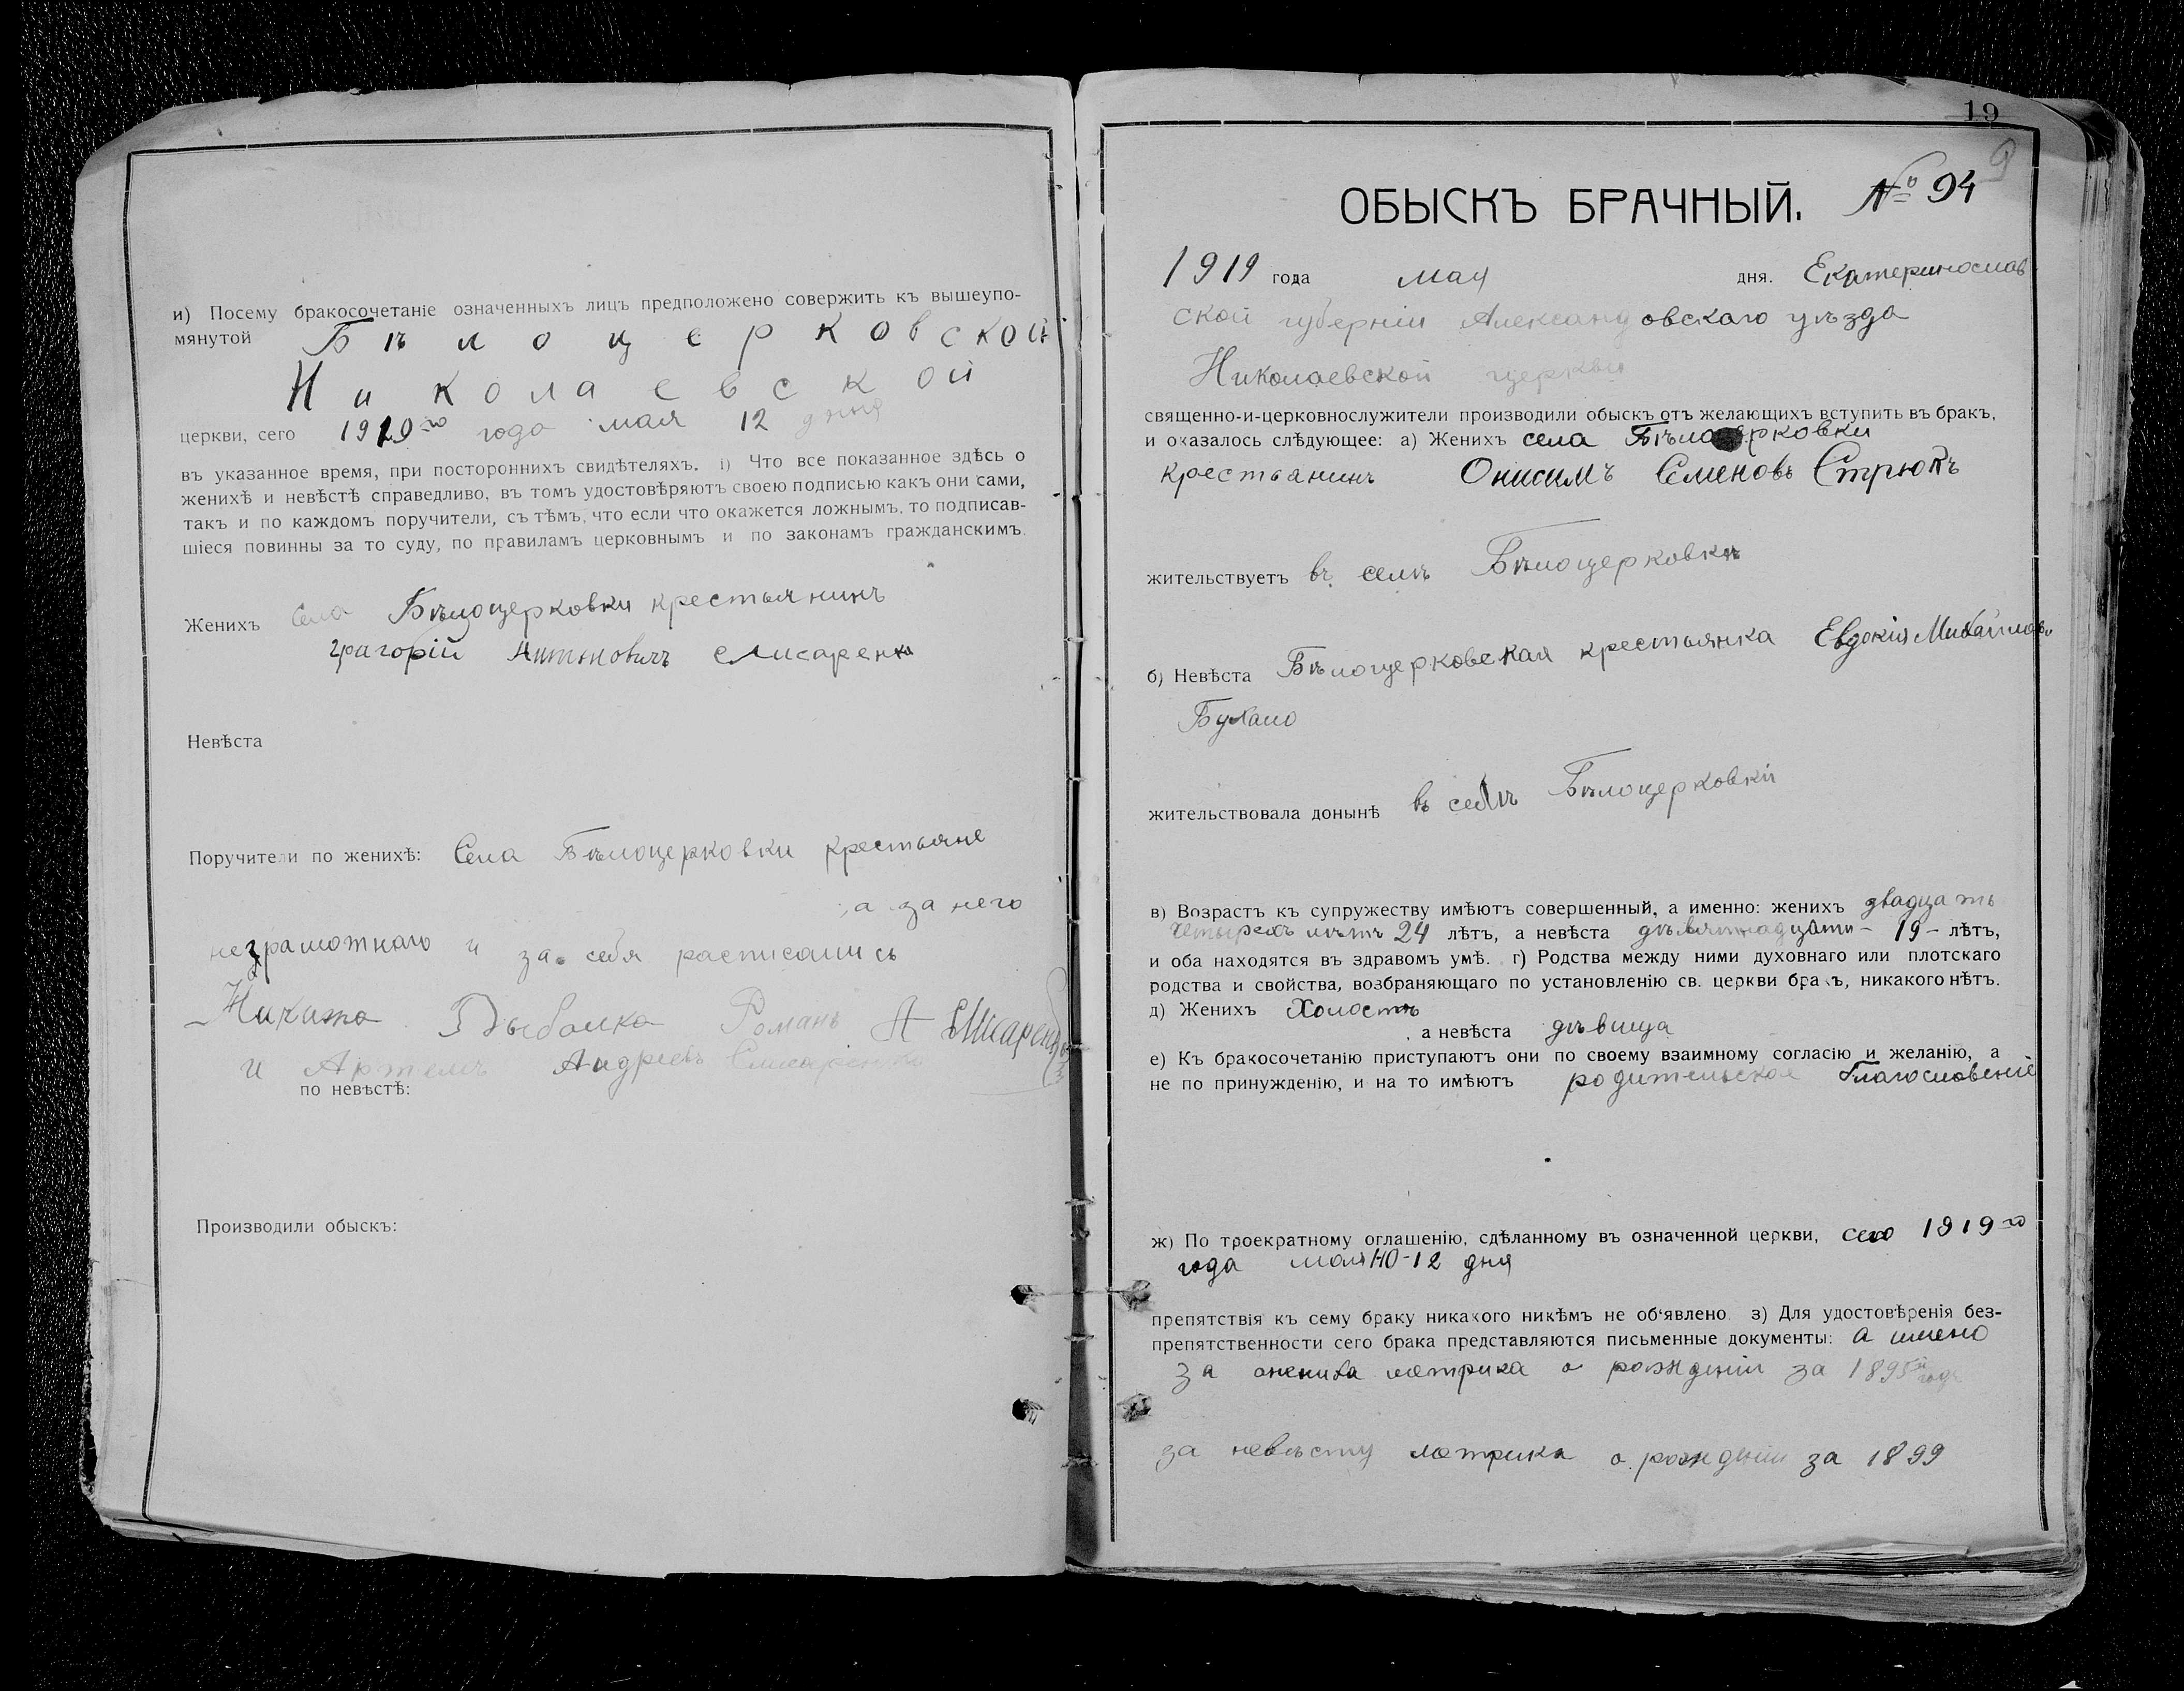 и) Посему бракосочетаніе означенныхъ лицъ предположено совержить къ вышеупо-
мянутой Бѣлоцерковской
Николаевской
церкви, сего 1919го года мая 12 дня
въ указанное время, при постороннихъ свидѣтеляхъ. і) Что все показанное здѣсь о
женихѣ и невѣстѣ справедливо, въ томъ удостовѣряютъ своею подписью какъ они сами,
такъ и по каждомъ поручители, съ тѣмъ, что если что окажется ложнымъ, то подписав-
шіеся повинны за то суду, по правиламъ церковнымъ и по законамъ гражданскимъ.
Женихъ села Бѣлоцерковки крестьянинъ
Грагорій Антоновичъ Слисаренко
Невѣста
Поручители по женихѣ: Села Бѣлоцерковки крестьяне
, а за него
неграмотнаго и за себя расписались
Никита Романъ А
и Артемъ Андреевъ Слисаренко
по невѣстѣ:
Производили обыскъ:
19
9
ОБЫСКЪ БРАЧНЫЙ. № 94
1919 года мая дня. Екатеринослав
ской губерніи Александовскаго уѣзда
Николаевской церкви
священно-и-церковнослужители производили обыскъ отъ желающихъ вступить въ бракъ,
и оказалось слѣдующее: а) Женихъ села Бѣлоцерковки
крестьанинъ Онисимъ Семеновъ Стрюкъ
жительствуетъ въ селѣ Бѣлоцерковкѣ
б) Невѣста Бѣлоцерковская крестьянка Евдокія Михайлова
Бухало
жительствовала донынѣ въ селѣ Бѣлоцерковкі
в) Возрастъ къ супружеству имѣютъ совершенный, а именно: женихъ двадцать
четырехъ лѣтъ 24 лѣтъ, а невѣста дѣвятнадцати - 19 - лѣтъ,
и оба находятся въ здравомъ умѣ. г) Родства между ними духовнаго или плотскаго
родства и свойства, возбраняющаго по установленію св. церкви бракъ, никакого нѣтъ.
д) Женихъ Холостъ
, а невѣста дѣвица
е) Къ бракосочетанію приступаютъ они по своему взаимному согласію и желанію, а
не по принужденію, и на то имѣютъ родительское благословеніе
ж) По троекратному оглашенію, сдѣланному въ означенной церкви, сего 1919го
года мая 10-12 дня
препятствія къ сему браку никакого никѣмъ не об'явлено. з) Для удостовѣренія без-
препятственности сего брака представляются письменные документы: а имено
за жениха матрика о рожденіи за 1895й годъ
за невѣсту матрика о рожденіи за 1899